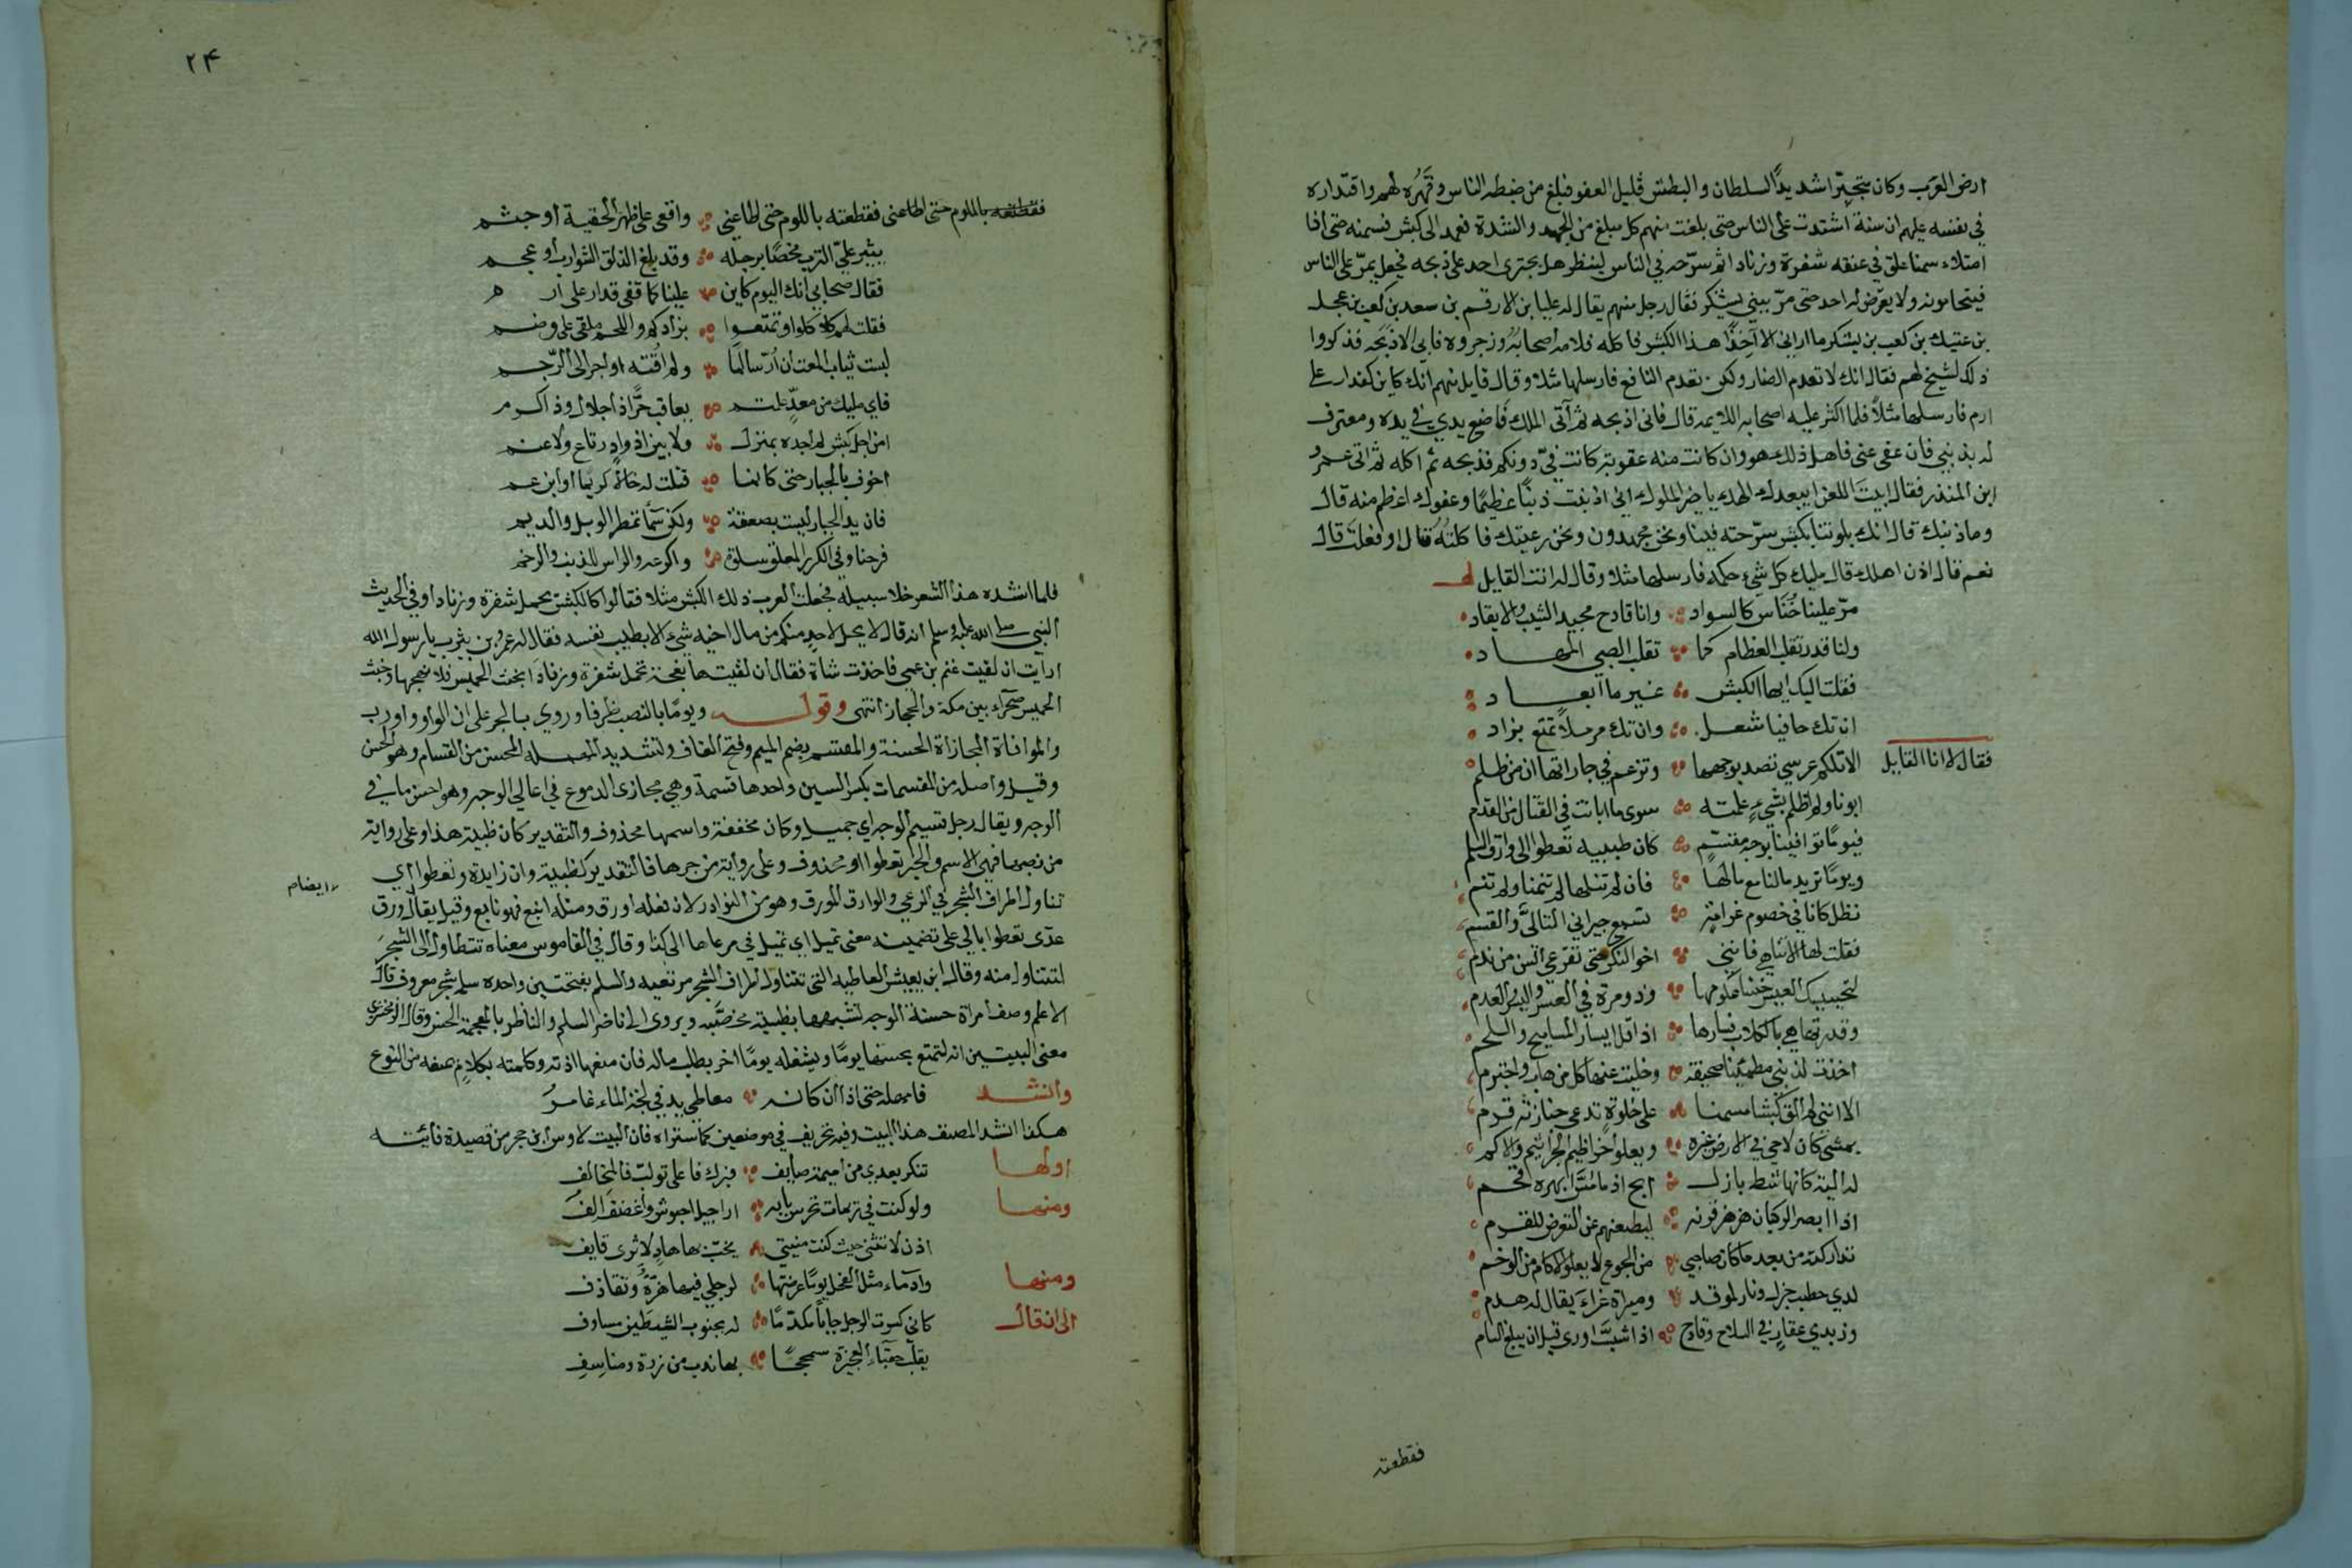 ارض العرب وكان متجبرا شديد السلطان والبطش قليل العفو فبلغ من ضبطه الناس وقهره لهم واقتداره
في نفسه عليهم ان سنة اشتدت على الناس حتى بلغت منهم كل مبلغ من الجهد والشدة فعمد الى كبش فسمنه حتى اذا
امتلاء سمنا علق في عنقه شفرة وزنادا ثم سرّحه في الناس لينظر هل يجترى احد على ذبحه فجعل يمرّ على الناس
فيتحامونه ولا يعرض له احد حتى مرّ ببني يشكر فقال رجل منهم يقال له علبا بن الارقم بن سعد بن كعب بن عجل
بن عتيك بن كعب بن يشكر ما اراني الا آخذًا هذا الكبش فاكله فلامه اصحابه وزجروه فابى الا ذبحه فذكروا
ذلك لشيخ لهم فقال انك لا تعدم الضار ولكن تعدم النافع فارسلها مثلا وقال قايل منهم انك كاين كقدار على
ارم فارسلها مثلاً فلما اكثر عليه اصحابه اللايمه قال فاني اذبحه ثم آتى الملك فاضع يدي في يده ومعترف
له بذنبي فان عفى عني فاهل ذلك هو وان كانت منه عقوبة كانت فيّ دونكم فذبحه ثم اكله ثم اتى عمرو
ابن المنذر فقال ابيت اللعن يا خير الملوك اني اذنبت ذنبًا عظيمًا وعفوك اعظم منه قال
وما ذنبك قال انك بلوتنا بكبش سرّحته فينا ونحن مجهدون ونحن رعيتك فاكلته قال او فعلت قال
نعم قال اذن اهلك قال مليك كل شيء حكمه فارسلها مثلا وقال له انت القايل له
مرّ علينا خنّاس كالسواد وانا قادح مجيد الشب والايقاد
ولنا قدر تقلب العظام كما تقلب الصبي المهاد
فقلت اليك ايها الكبش غير ما ابعاد
ان تك حافيا شعل وان تك مرملاً تمتع بزاد
فقال لا انا القايل الا تلكم عرسي تصد بوجهها وتزعم في جاراتها ان من ظلم
ابونا ولم اظلم بشيء علمته سوى ما ابانت في القتال من القدم
فيومًا توافينا بوجه مقسّم كان ظبيية تعطوا الى وارق السلم
ويومًا تريد مالنا مع مالها فان لم تنلها لم تنمنا ولم تنم
نظل كانا في خصوم غرامة تسمع جيراني التالّي والقسم
فقلت لها الا تناهي فانني اخو النكر حتى تقرعي السن من ندم
وقدرتها هي بالكلاب اذا قل ايسار المساميح واللحم
اخذت لذنبي مطمئينا صحيفة وخليت عنها كل من هاب واخترم
الا انني لم الق كبشا مسمنا على خلوة تدعي جنازته قرم
يمشي كان لاحي في الارض غيره ويعلو اخراطيم الجراثيم والاكم
له الية كانها شط بازل ابح اذا ما مسّ ابهره فحم
تداركته من بعد ما كان صاحبي من الجوع لا يعلو الاكام من الوخم
لدي حطب جزل ونار لموقد وميراة غراء يقال لها هذم
وزندي عقار في السلاح وقادح اذا شبّت اورى قبل ان يبلغ السام
فقطعته
۲۴
فقطعته باللوم حتى اطاعني فقطعته باللوم حتى اطاعني واقعى على ظهر الحقيبة او جثم
يثير عليّ الترب فحصًا برجله وقد بلغ الذلق الشوارب او عجم
فقال صحابي انك اليوم كاين علينا كما قفى قدار على ار م
فقلت لهم كلا كلوا وتمتعوا بزادكم واللحم ملقى على وضم
لبست ثياب المقت ان ارّ سالمًا ولم اقته او اجر الى الرّجم
فاي مليك من معدّ علمتم يعاقب حرًّا ذا جلال وذا كرم
امن اجل كبش لم اجده بمنزل ولا بين اذواد رتاع ولا غنم
اخوف بالجبار حتى كانما قتلت له خالاً كريما او ابن عم
فان يد الجبار ليست بصعقة ولكن سماً تمطر الوبل والديم
فرحنا وفي الكرز المعلق سلة واكرعه والراس للذيب والرخم
فلما انشده هذا الشعر خلا سبيله فجعلت العرب ذلك الكبش مثلا فقالوا كالكبش يحمل شفرة وزنادا وفي الحديث
النبي صلى الله عليه وسلم انه قال لا يحل لاحد منكم من مال اخيه شيء الا بطيب نفسه فقال له عمرو بن يثرب يا رسول الله
ارآيت ان لقيت غنم بن عمي فاخذت شاة فقال ان لقيتها نعجة تحمل شفرة وزنادا بخبت الجميس فلا تهجها وخبت
الجميس صحراء بين مكة والحجاز انتهى وقوله ويومًا بالنصب ظرفا وروي بالجر على ان الواو واو رب
والموافاة المجازاة الحسنة والمقسّم بضم الميم وفتح القاف وتشديد المهملة المحسن من القسام وهو الحسن
وقيل واصله من القسمات بكسر السين واحدها قسمة وهي مجازى الدموع في اعالي الوجه وهو احسن ما في
الوجه ويقال رجل قسيم الوجه اي جميل وكان مخففة واسمها محذوف والتقدير كان ظبية هذا وعلى رواية
من نصبها فهي الاسم والخبر تعطوا او محذوف وعلى رواية من جرها فالتقدير كظبية وان زايدة وتعطوا اي
تناول اطراف الشجر في الرعي والوارق المورق وهو من النوادر لان فعله اورق ومثله اينع فهو يانع وقيل يقال ورق
ايضا م
عدّى تعطوا بالى على تضمينه معنى تميل اي تميل في مرعاها الى كذا وقال في القاموس معناه تتطاول الى الشجر
لتتناول منه وقال ابن يعيش العاطية التي تتناول اطراف الشجر مرتعيه والسلم بفتحتين واحده سلمه شجر معروف قال
الاعلم وصف امراة حسنة الوجه تشبهها بظبية مخصبه ويروى الى ناضر السلم والناظر بالمعجمة الحسن وقال الزمخشري
معنى البيتين انه تمتع بحسنها يومًا وتشغله يومًا اخر بطلب ماله فان منعها اذته وكلمته بكلام يمنعه من النوع
وانشد فامهله حتى اذا ان كانه معاطي يد في لجة الماء غامر
هكذا انشد المصنف هذا البيت وفيه تحريف في موضعين كما ستراه فان البيت لاوس ابن حجر من قصيدة فائيته
اولها تنكر بعدي من اميمة صايف فبرك فاعلى تولب فالمخالف
ومنها ولو كنت في ريمان تحرس بابه اراجيل احبوش واغضف الف
اذن لاتتني حيث كنت منيتي يخبّ بها هاد لاثري قايف
ومنها وادماء مثل الفحل يومًا عرضتها لرجلي فيها هزّة وتقاذف
الى ان قال كاني كسوت الرجل جابًا مكدّمًا له بجنوب الشيطين مساوف
يقلب حقباء العجيزة سمحجًا بها ندب من زره ومناسف